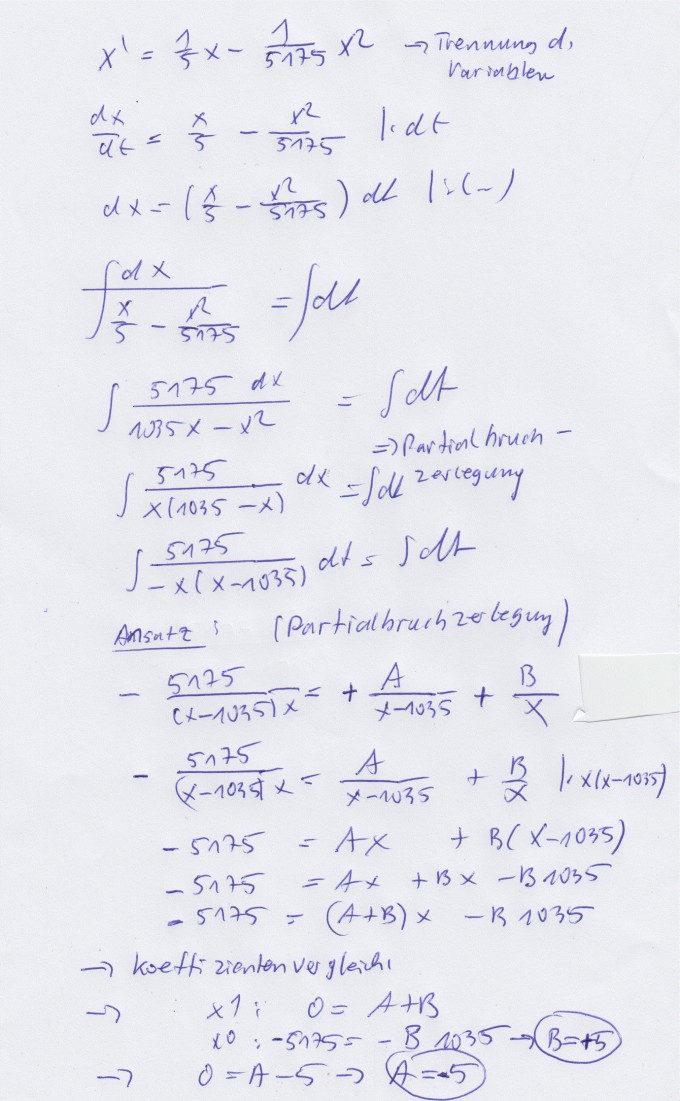 x' = 1/5 x - 1/5175 x² → Trennung d.
Variablen
dx/dt = x/5 - x²/5175 |· dt
dx = (x/5 - x²/5175) dt |:(~)
∫ dx/(x/5 - x²/5175) = ∫dt
∫ 5175 dx/(1035x - x²) = ∫dt
⇒ Partialbruch-
∫ 5175/(x(1035 - x)) dx = ∫dt zerlegung
∫ 5175/(-x(x-1035)) dt = ∫dt
Ansatz: (Partialbruchzerlegung)
- 5175/((x-1035)x) = + A/(x-1035) + B/x
- 5175/((x-1035)x) = A/(x-1035) + B/x |· x(x-1035)
-5175 = Ax + B(x-1035)
-5175 = Ax + Bx - B1035
-5175 = (A+B)x - B1035
→ Koeffizientenvergleich:
→ x1: 0 = A+B
x0: -5175 = -B 1035 → B=+5
→ 0 = A-5 → A=-5